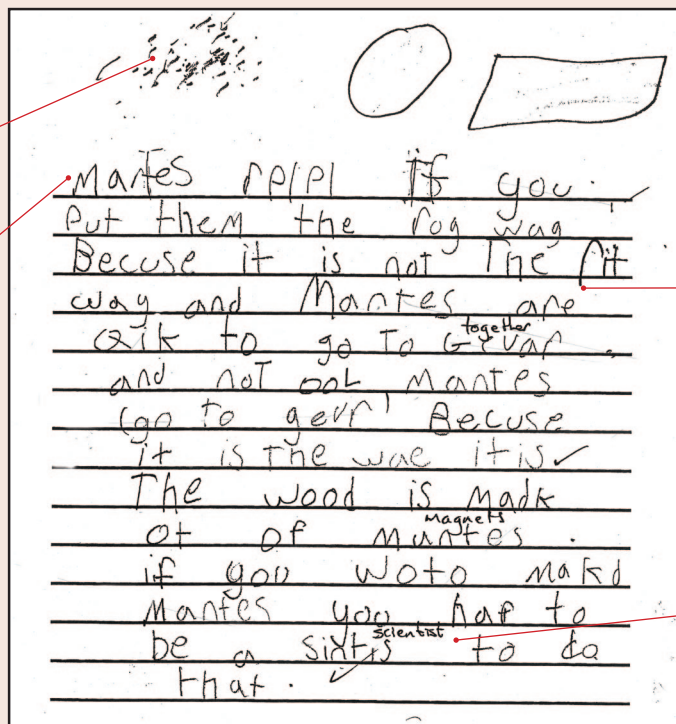 Mantes rplpl If you.
Put them the rog wag
Becuse it is not The rit
way and Mantes are
Qik to go To Gevar
together
and not ooL mantes
(go To gevr' Becuse
it is The wae it is ✓
The wood is madk
ot of mantes.
magnets
if you woto makd
Mantes you haf to
be a sixtis to do
scientist
that. ✓